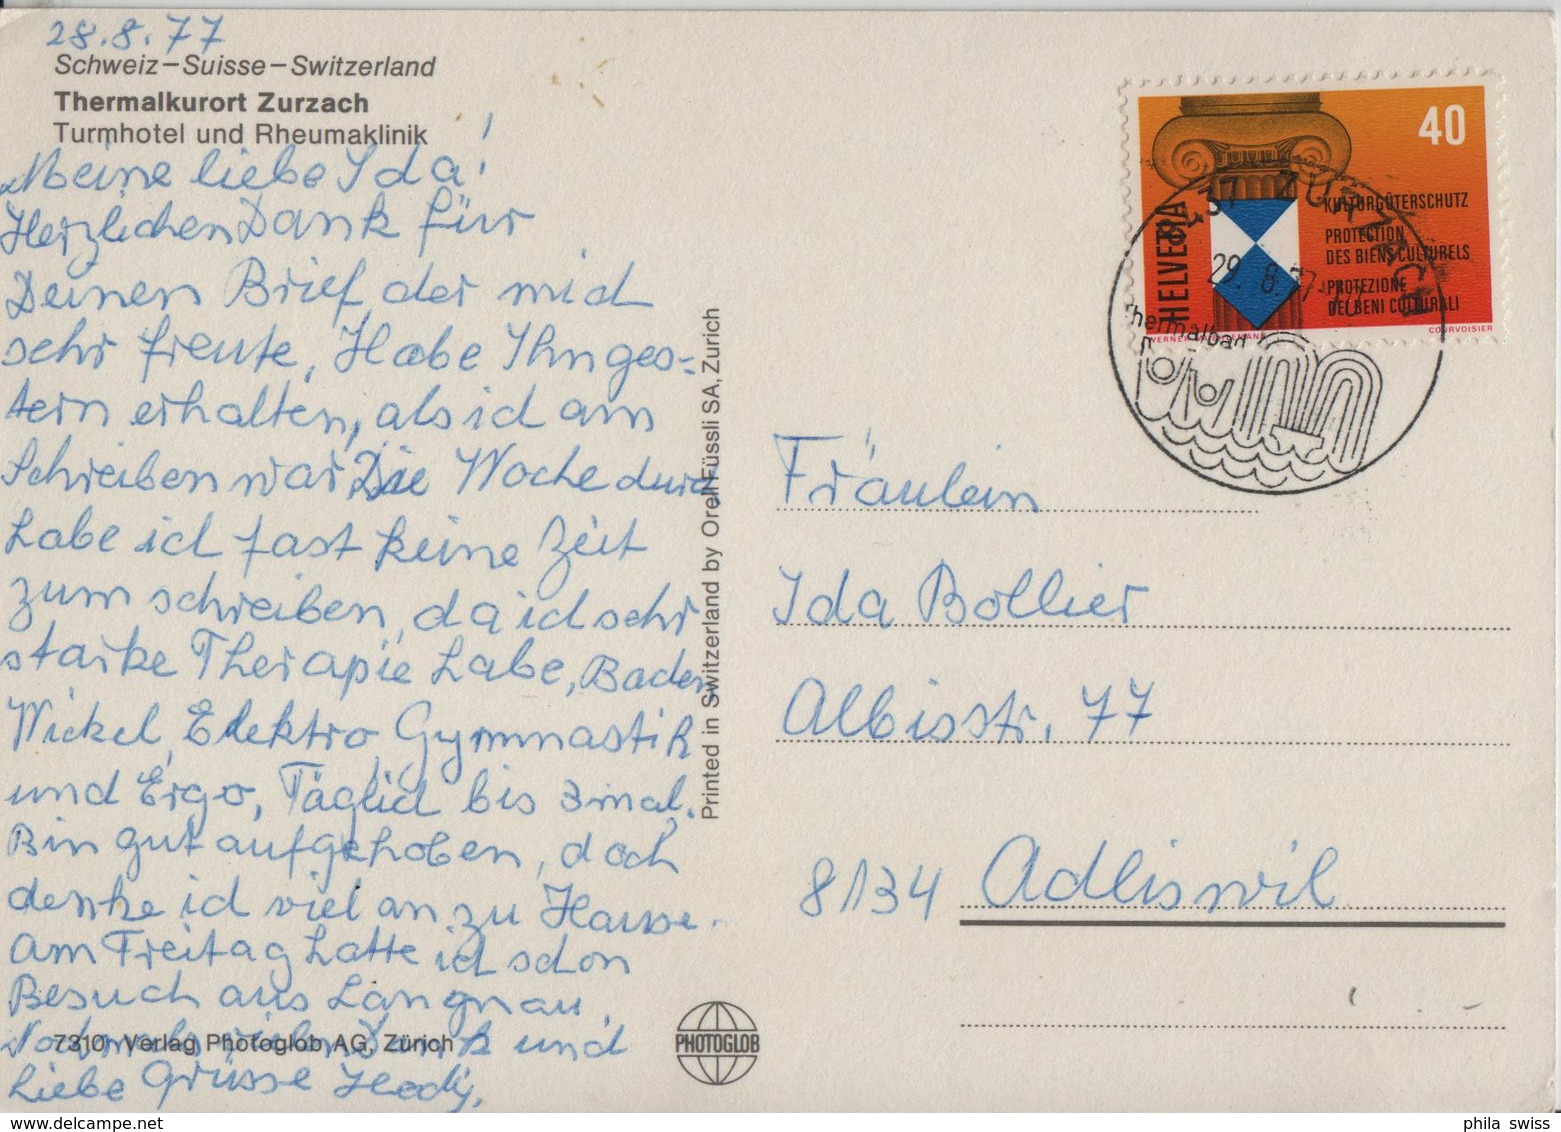 28.8.77
Schweiz–Suisse–Switzerland
Thermalkurort Zurzach
Turmhotel und Rheumaklinik
Meine liebe Ida!
Herzlichen Dank für
Deinen Brief der mich
sehr freute, Habe Ihn ges=
tern erhalten, als ich am
Schreiben war, Die Woche durch
habe ich fast keine Zeit
zum schreiben, da ich sehr
starke Therapie habe, Baden
Wickel, Elektro, Gymnastik
und Ergo, Täglich bis 3mal.
Bin gut aufgehoben, doch
denke ich viel an zu Hause.
Am Freitag hatte ich schon
Besuch aus Langnau,
Nochmals vielen Dank und
Liebe Grüsse Hedy,
7310 Verlag Photoglob AG, Zürich
Printed in Switzerland by Orell Füssli SA, Zurich
PHOTOGLOB
HELVETIA
40
KULTURGÜTERSCHUTZ
PROTECTION
DES BIENS CULTURELS
PROTEZIONE
DEI BENI CULTURALI
COURVOISIER
8437 ZURZACH
29.8.77
Thermalbad
Fräulein
Ida Bollier
Albisstr. 77
8134 Adliswil
phila swiss